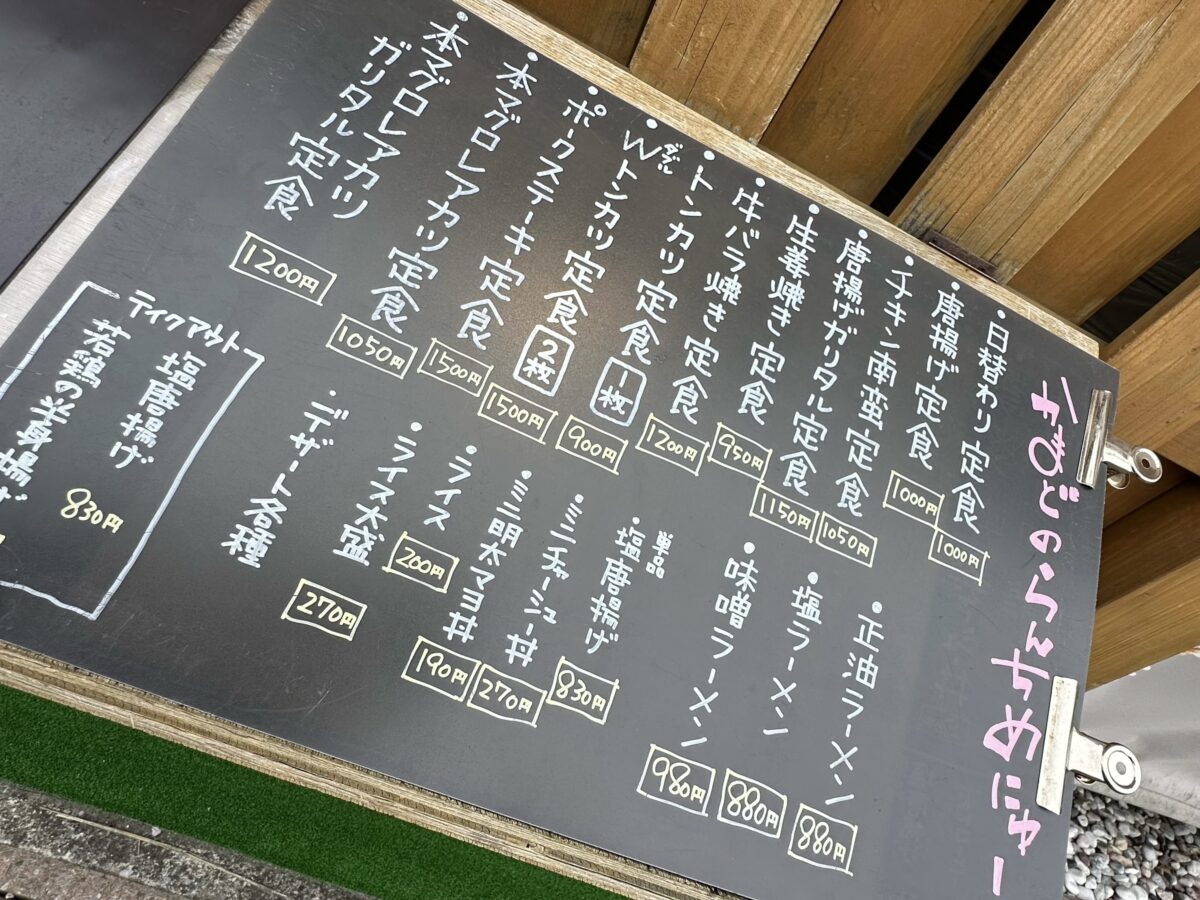 かまどのらんちめにゅー
・日替わり定食 1000円
・唐揚げ定食 1000円
・チキン南蛮定食 1050円
・唐揚げガリタル定食 1150円
・生姜焼き定食 950円
・牛バラ焼き定食 1200円
・トンカツ定食 1枚 900円
・Wトンカツ定食 2枚 1500円
ダブル
・ポークステーキ定食 1500円
・本マグロレアカツ定食 1050円
・本マグロレアカツ
ガリタル定食 1200円
・正油ラーメン 880円
・塩ラーメン 880円
・味噌ラーメン 980円
単品
・塩唐揚げ 830円
・ミニチャーシュー丼 270円
・ミニ明太マヨ丼 190円
・ライス 200円
・ライス大盛 270円
・デザート各種
テイクアウト
塩唐揚げ 830円
若鶏の半身揚げ